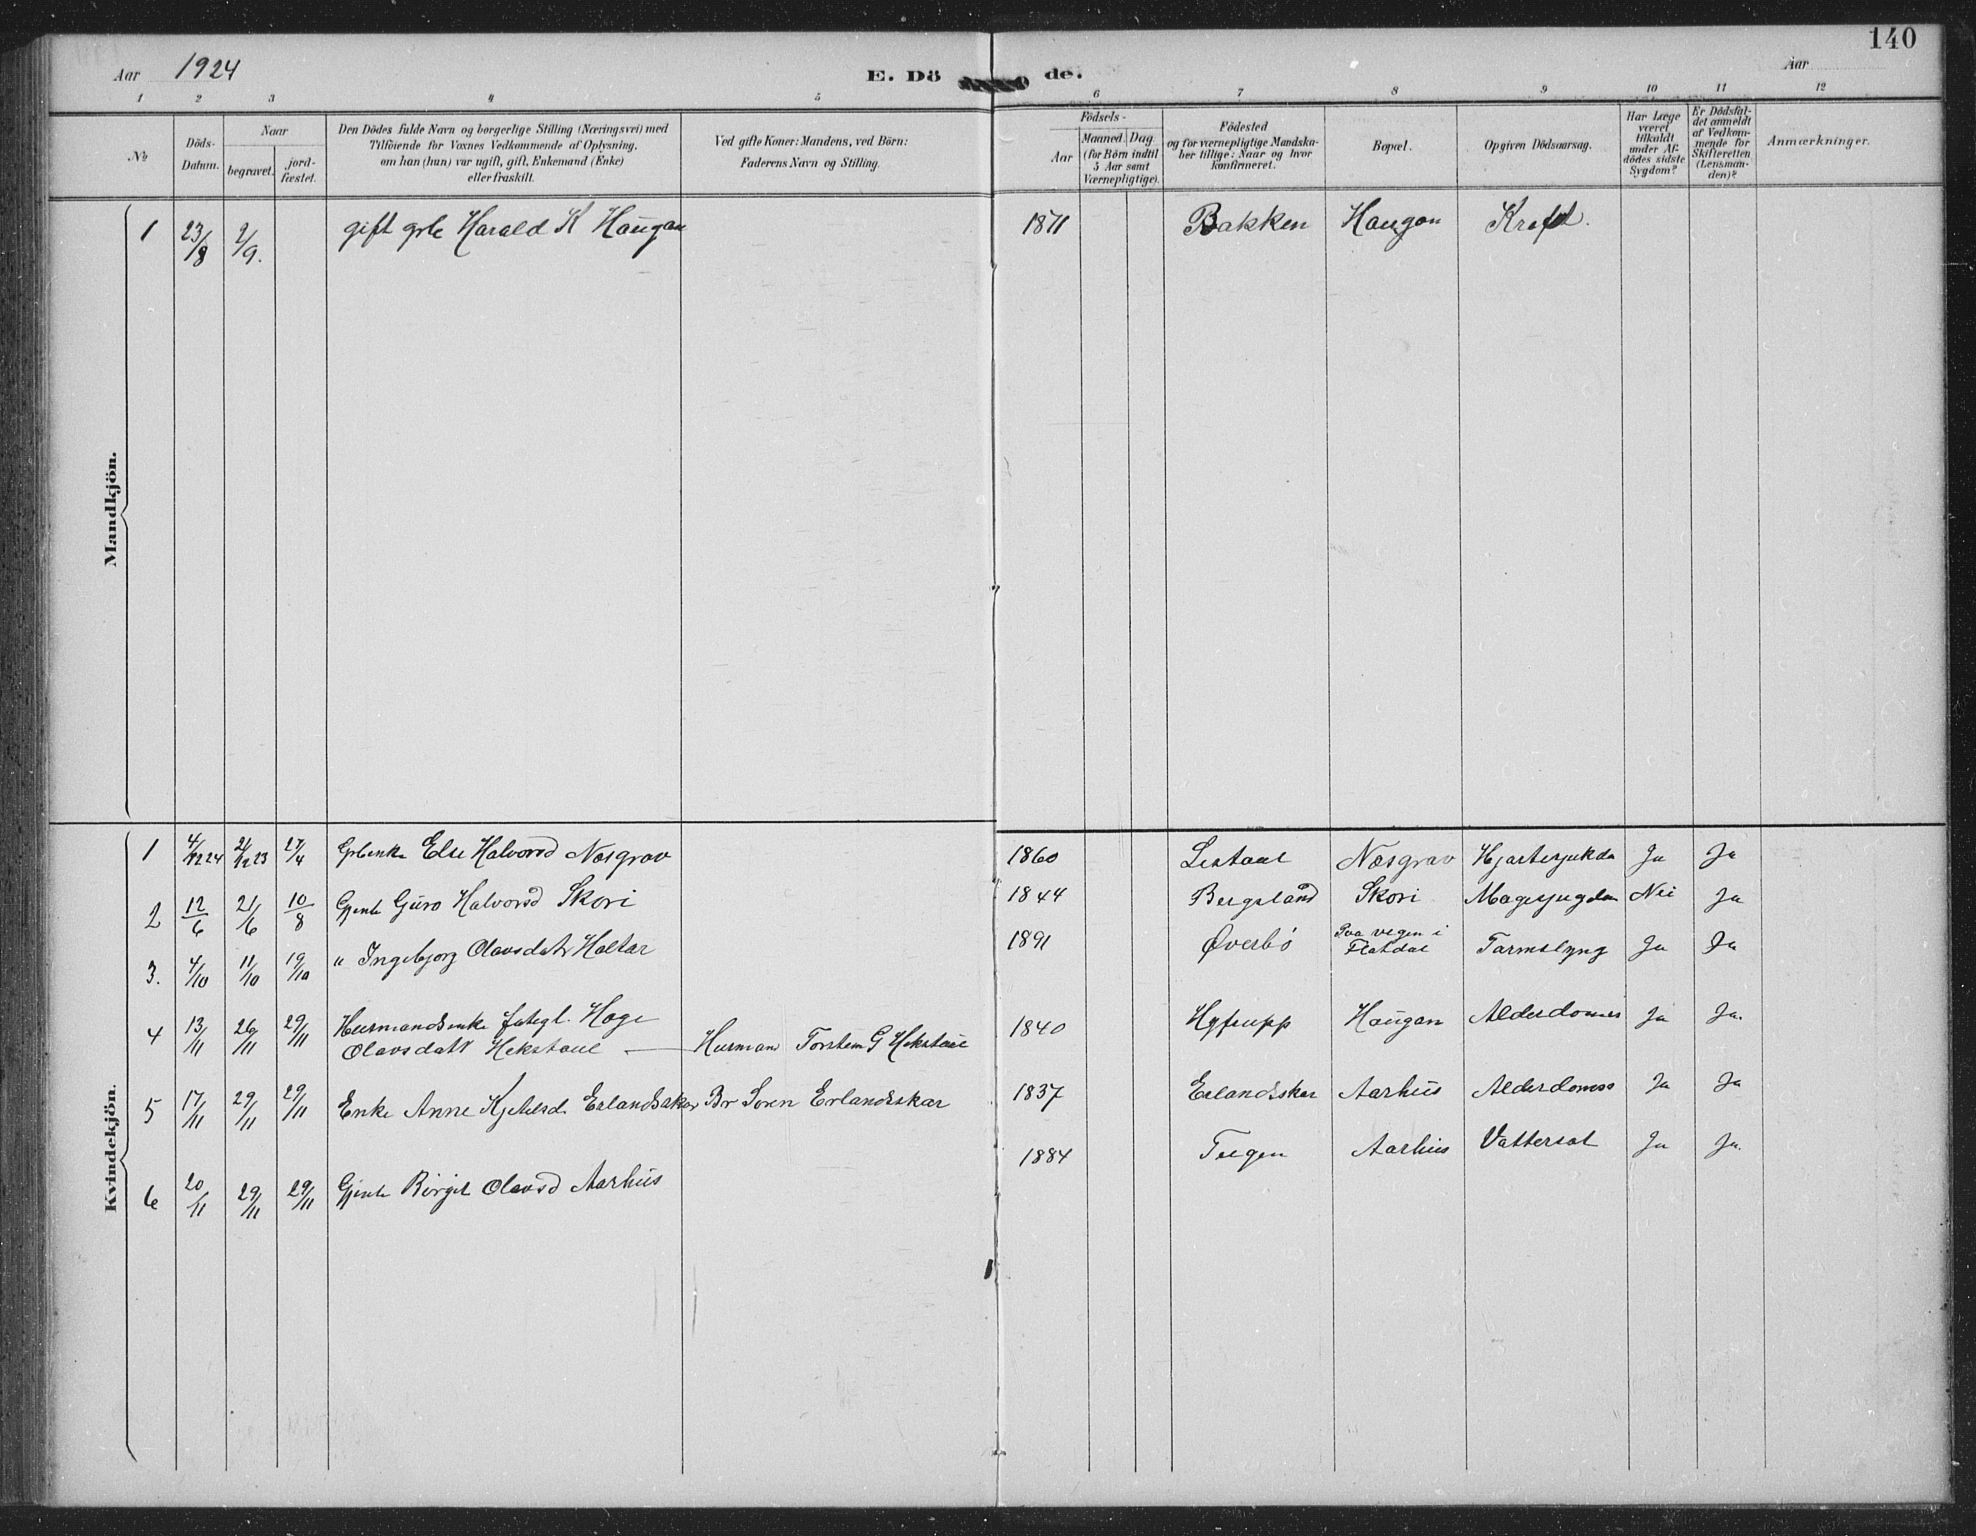 140
Aar 1924 E. Dö de. Aar
1 2 3 4 5 6 7 8 9 10 11 12
No
Döds-Datum.
Naar
begravet.
jord-fæstet.
Den Dödes fulde Navn og borgerlige Stilling (Næringsvei) med
Tilföiende for Voxnes Vedkommende af Oplysning,
om han (hun) var ugift, gift, Enkemand (Enke)
eller fraskilt.
Ved gifte Koner: Mandens, ved Börn:
Faderens Navn og Stilling.
Födsels-
Aar
Maaned. Dag.
(for Börn indtil
5 Aar samt
Værnepligtige).
Födested
og for værnepligtige Mandska-
ber tillige: Naar og hvor
konfirmeret.
Bopæl.
Opgiven Dödsaarsag.
Har Læge
været
tilkaldt
under Af-
dödes sidste
Sygdom?
Er Dödsfal-
det anmeldt
af Vedkom-
mende for
Skifteretten
(Lensman-
den)?
Anmærkninger.
Mandkjön.
1 23/8 2/9. gift grbr Harald K Haugan 1871 Bakken Haugan Kreft.
Kvindekjön.
1 27/4 Else Halvorsd Næsgrav 1860 Næsgrav Hjartesjukda Ja Ja
2 12/6 21/6 10/8 Gjente Guro Halvorsd Skori 1844 Bergsland Skori Magesjugdom Nei Ja
3. 4/10 11/10 19/10 " Ingebjorg Olavsdatr Haltar 1891 Øverbö Paa vegen i Flatdal Tarmslyng Ja Ja
4 13/11 26/11 29/11 Husmandsenke fategl. Hage
Olavsdatr Hekstaul — Husman Torstein G Hekstaul 1840 Haugan Alderdomes Ja Ja.
5 17/11 29/11 29/11 Enke Anne Kjetilsd. Erlandsskar Br Soren Erlandsskar 1837 Erlandsskar Aarhus Alderdomss Ja Ja
6 20/11 29/11 29/11 Gjente Birgit Olavsd Aarhus 1884 Teigen Aarhus Vattersot Ja Ja.